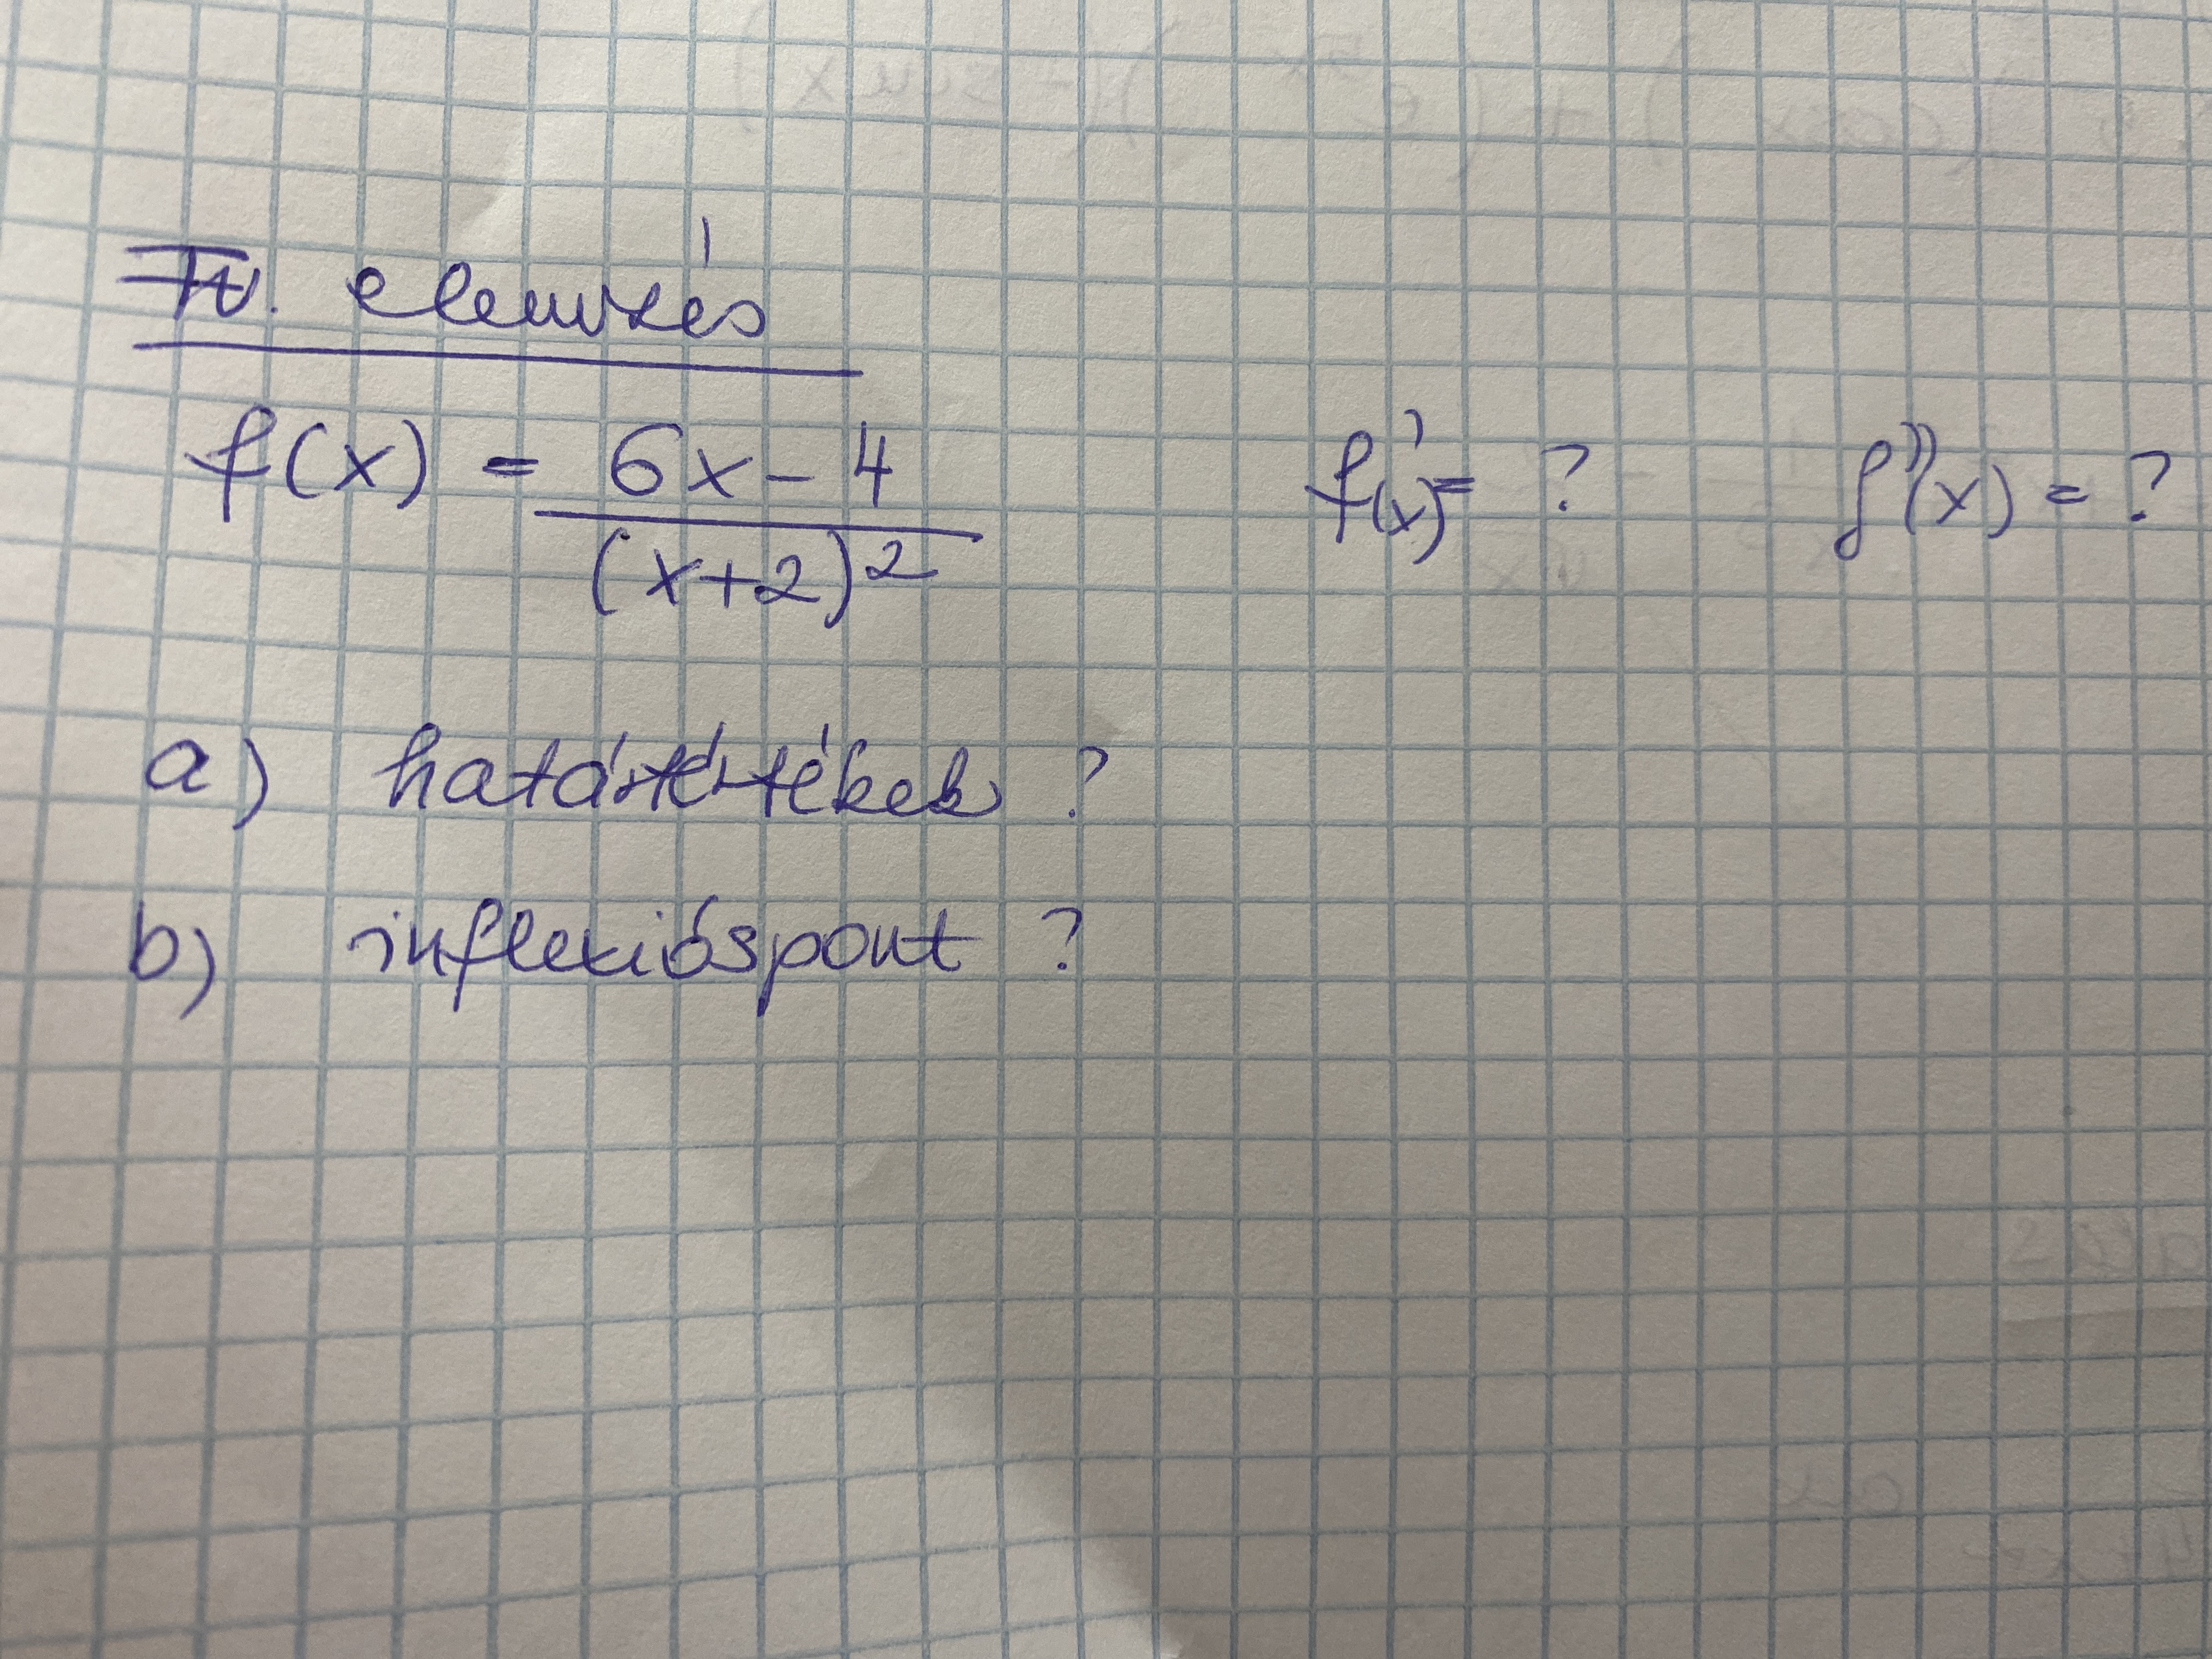 Fv. elemzés
f(x) = 6x-4 / (x+2)² f'(x) = ? f''(x) = ?
a) határértékek ?
b) inflexióspont ?